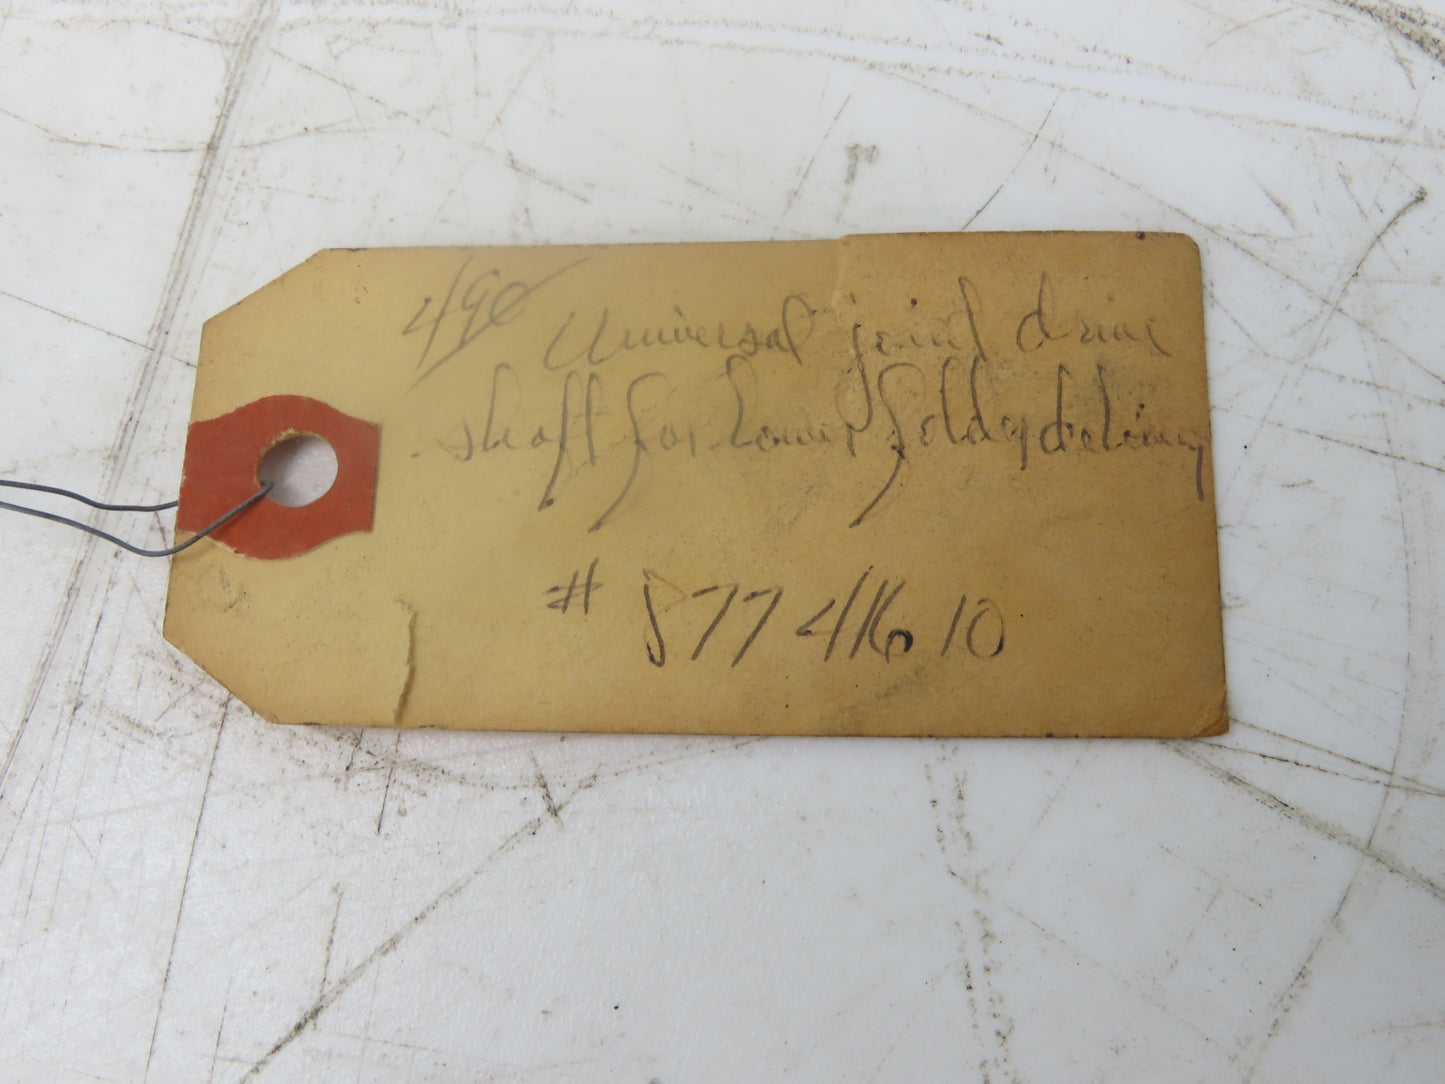 490 Universal joint drive
shaft for lower folder delivery
# 8774610